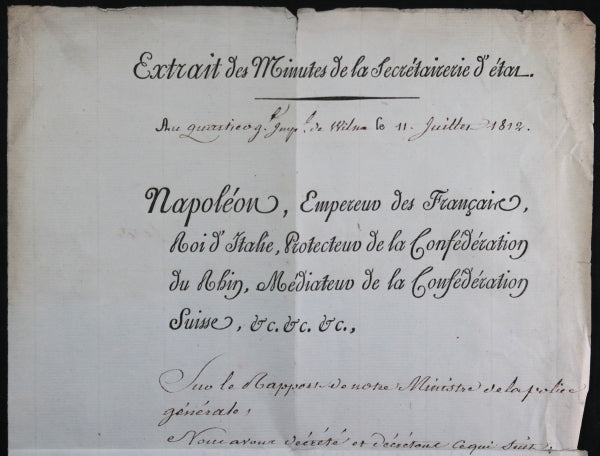 Extrait des Minutes de la Secrétairerie d'état.
Au quartier g.al Imp.al de Wilna le 11 Juillet 1812.
Napoléon, Empereur des Français,
Roi d'Italie, Protecteur de la Confédération
du Rhin, Médiateur de la Confédération
Suisse, &c. &c. &c.,
Sur le Rapport de notre Ministre de la police
générale;
Nous avons décrété et décrétons ce qui suit: